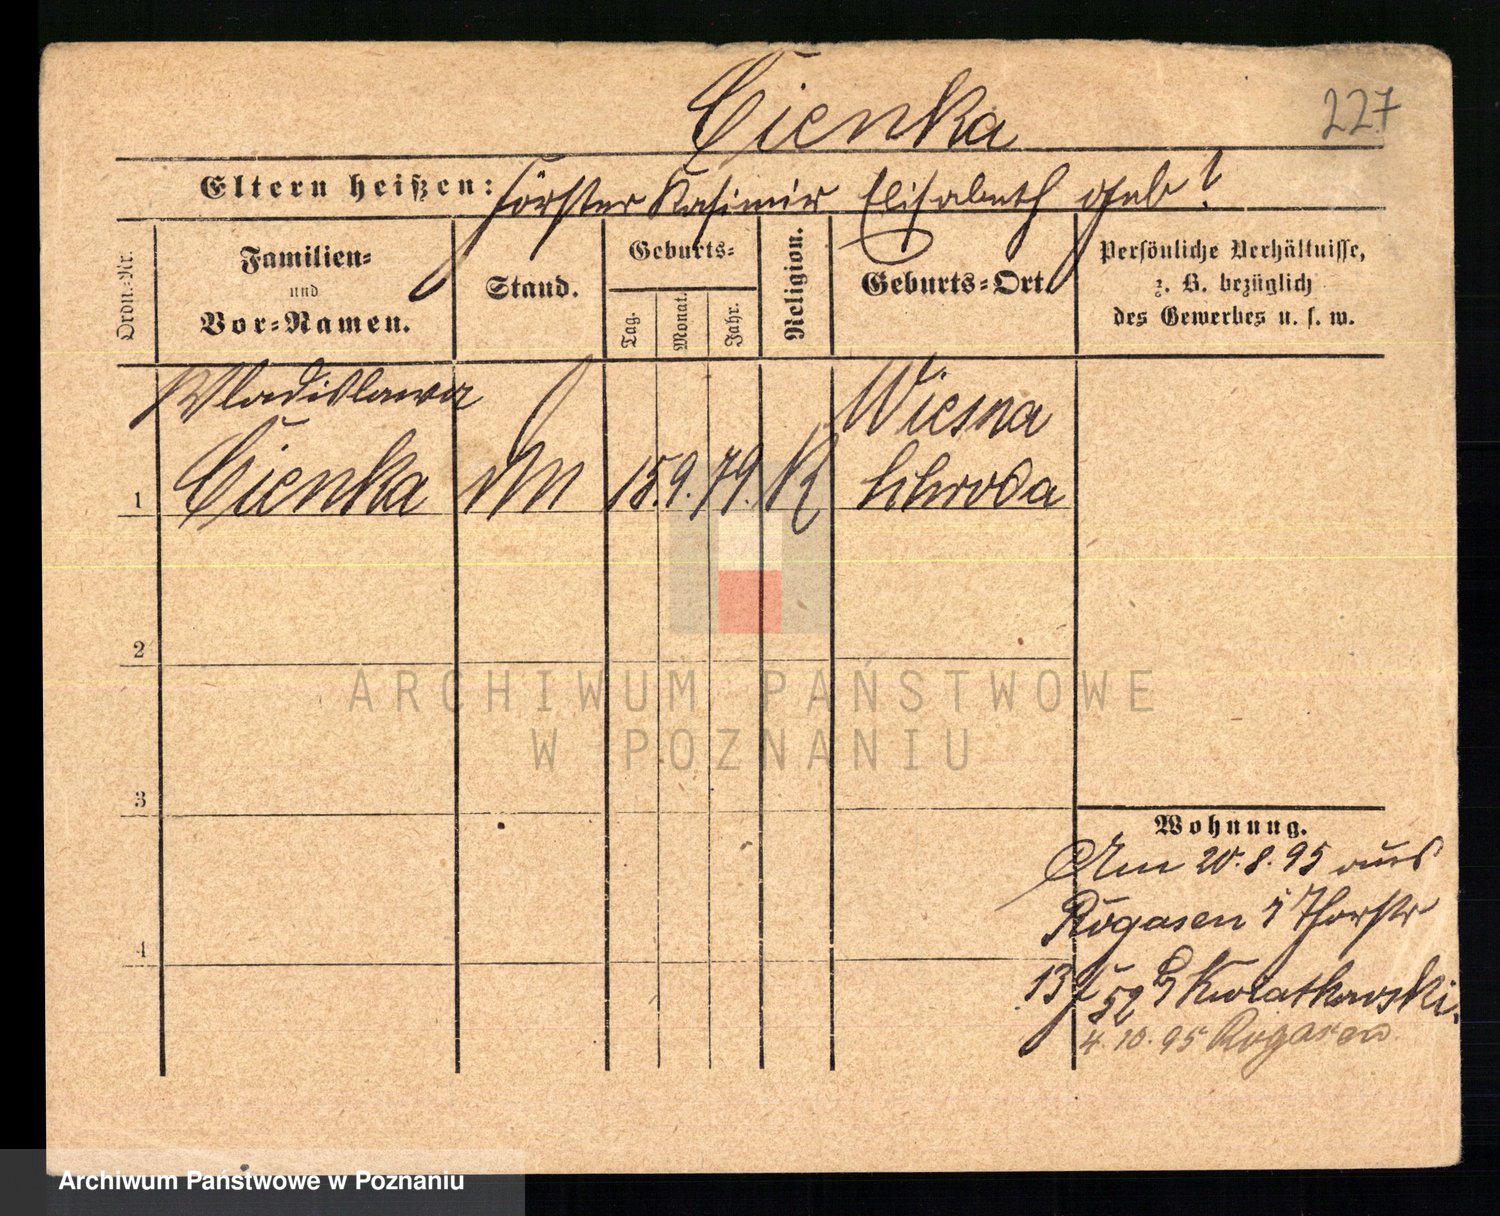 227
Cienka
Eltern heißen: Förster Kasimir Elisabeth geb ?
Ordn.-Nr.
Familien-
und
Vor-Namen.
Stand.
Geburts-
Tag.
Monat.
Jahr.
Religion.
Geburts-Ort.
Persönliche Verhältnisse,
z. B. bezüglich
des Gewerbes u. s. w.
Wladislawa
Cienka
15. 9. 79. K
Wiesna
Schroda
1
2
3
4
Wohnung.
Am 20. 8. 95 aus
Rogasen Thorstr
13 Kwiatkowski.
4. 10. 95 Rogasen
ARCHIWUM PAŃSTWOWE
W POZNANIU
Archiwum Państwowe w Poznaniu